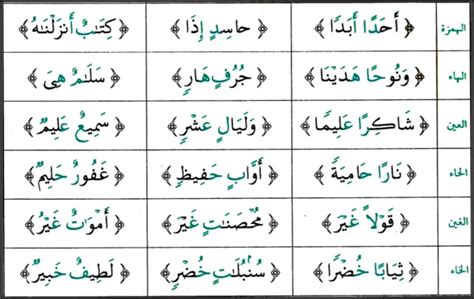 الهمزة ﴿ أَحَدًا أَبَدًا ﴾ ﴿ حَاسِدٍ إِذَا ﴾ ﴿ كِتَٰبٌ أَنزَلْنَٰهُ ﴾
الهاء ﴿ وَنُوحًا هَدَيْنَا ﴾ ﴿ جُرُفٍ هَارٍ ﴾ ﴿ سَلَٰمٌ هِىَ ﴾
العين ﴿ شَاكِرًا عَلِيمًا ﴾ ﴿ وَلَيَالٍ عَشْرٍ ﴾ ﴿ سَمِيعٌ عَلِيمٌ ﴾
الحاء ﴿ نَارًا حَامِيَةً ﴾ ﴿ أَوَّابٍ حَفِيظٍ ﴾ ﴿ غَفُورٌ حَلِيمٌ ﴾
الغين ﴿ قَوْلًا غَيْرَ ﴾ ﴿ مُحْصَنَٰتٍ غَيْرَ ﴾ ﴿ أَمْوَٰتٌ غَيْرُ ﴾
الخاء ﴿ ثِيَابًا خُضْرًا ﴾ ﴿ سُنۢبُلَٰتٍ خُضْرٍ ﴾ ﴿ لَطِيفٌ خَبِيرٌ ﴾